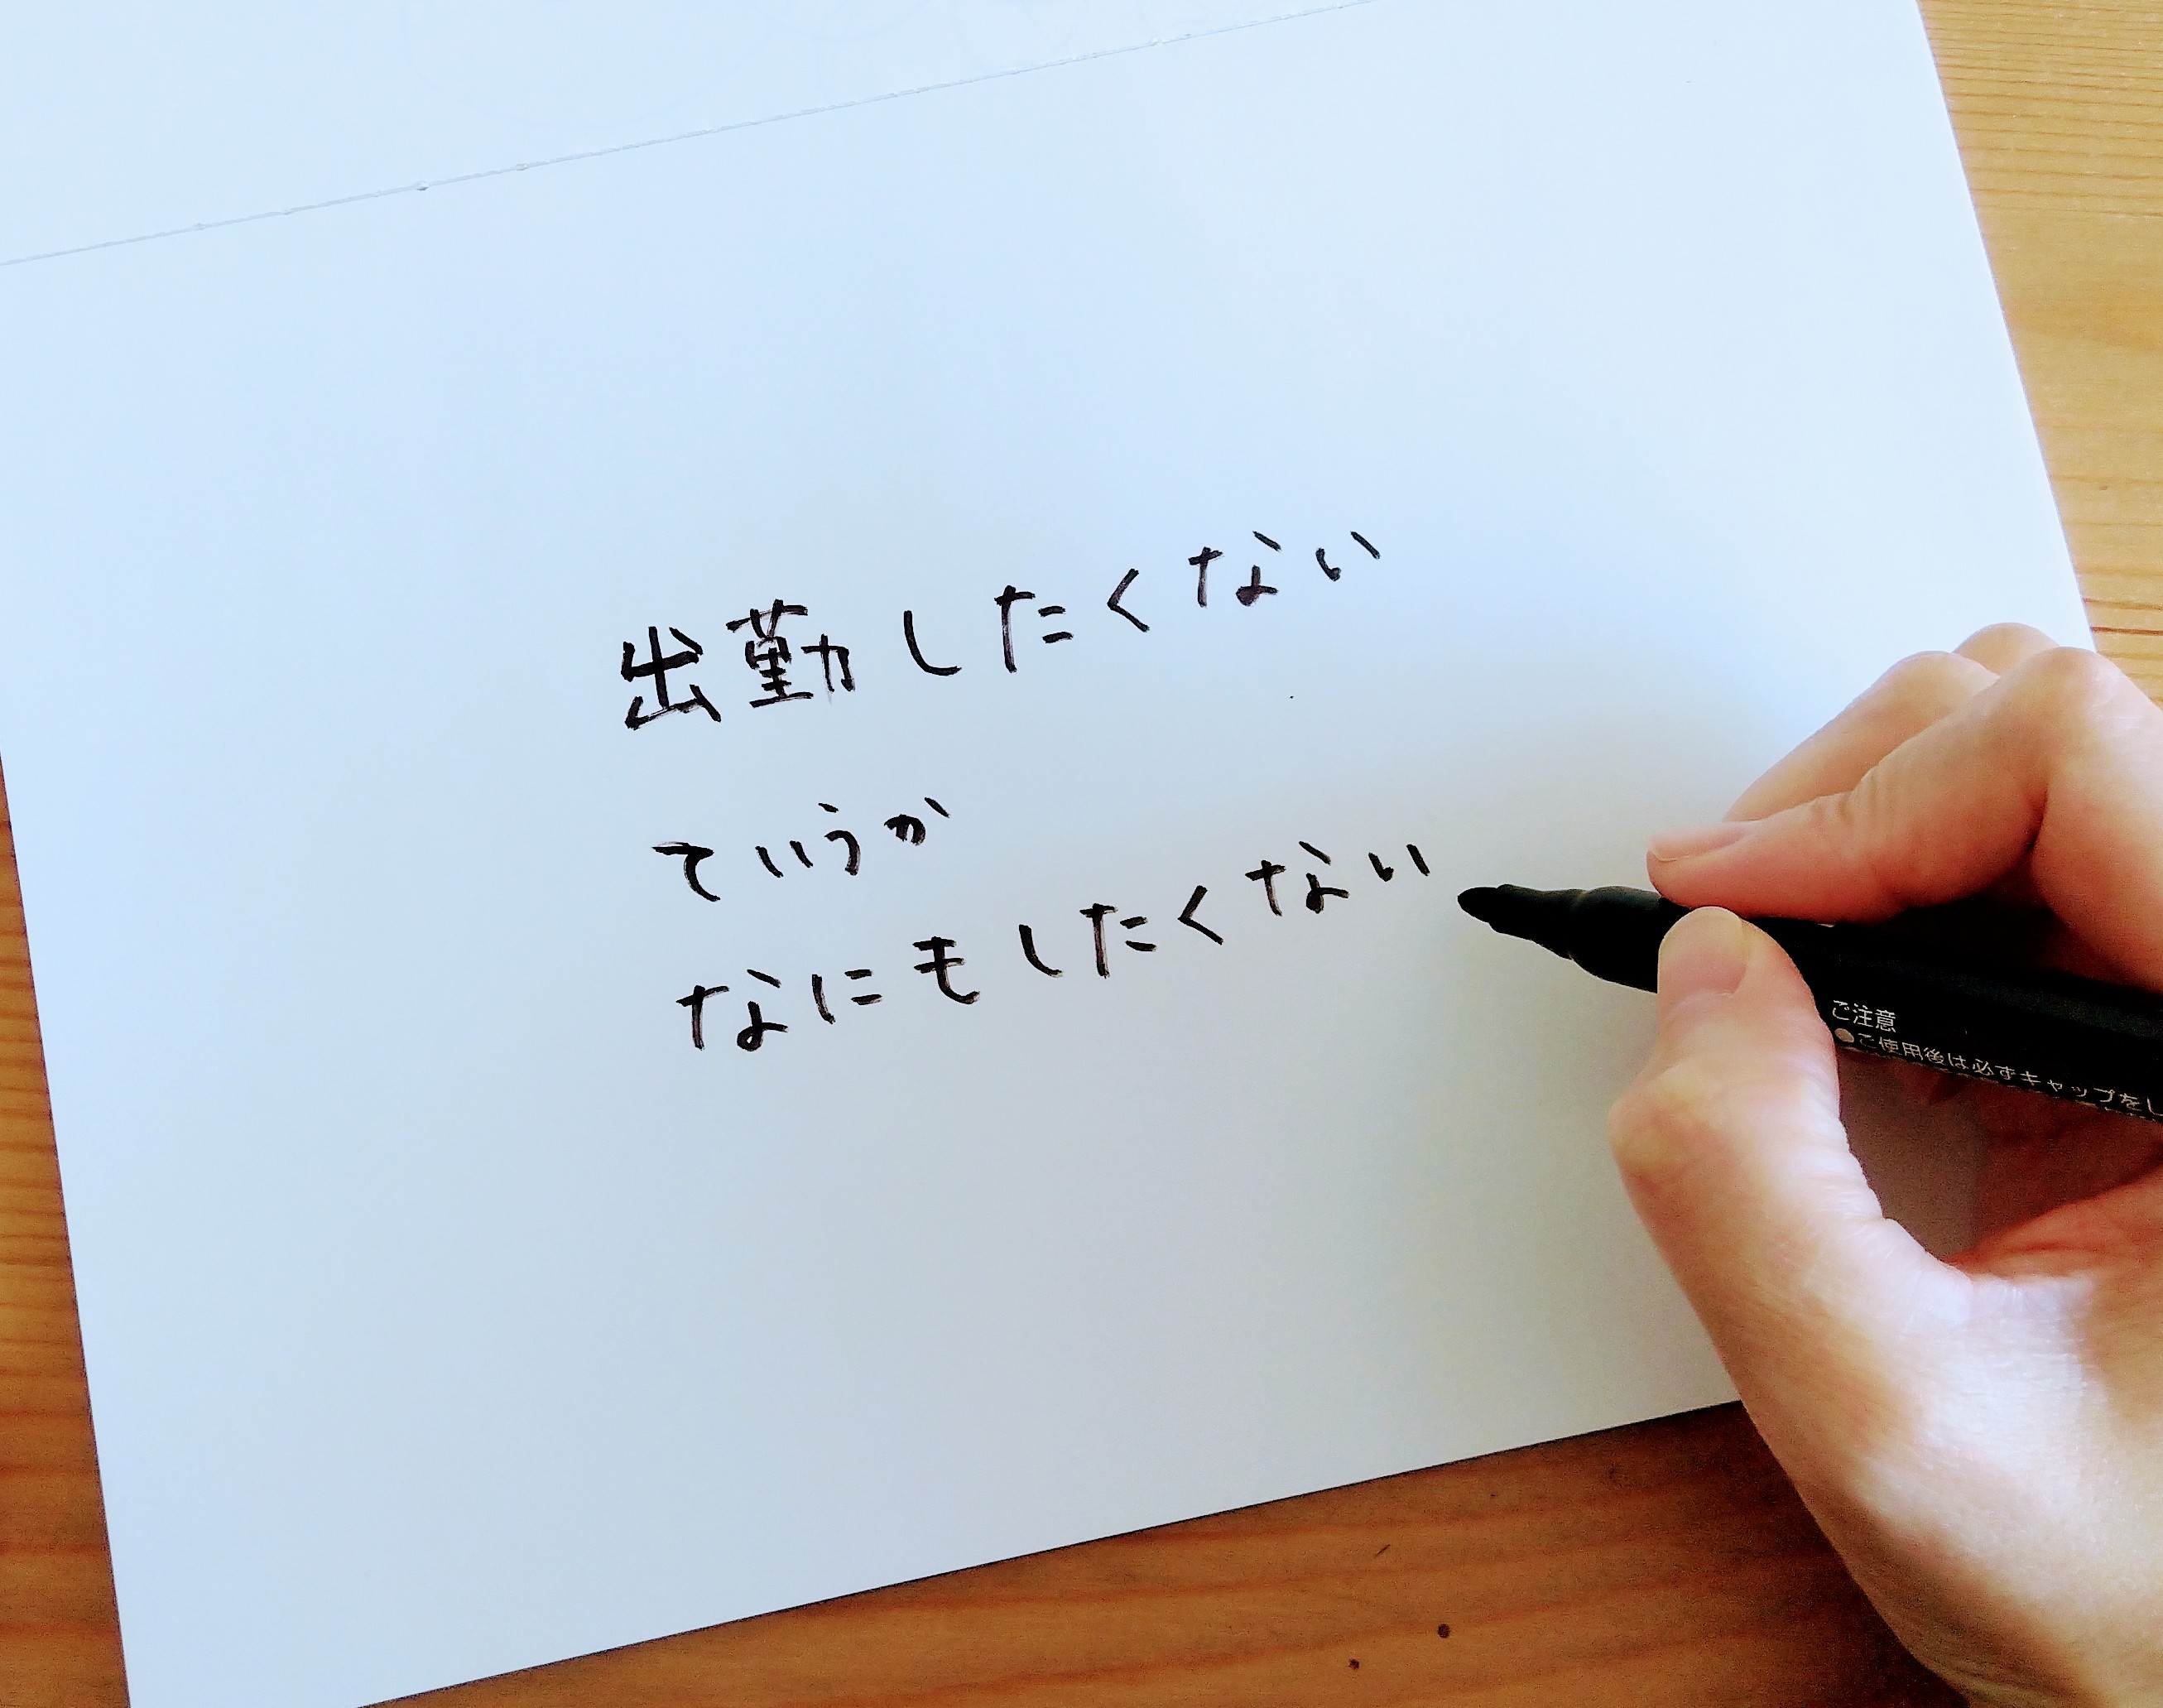 出勤したくない
ていうか
なにもしたくない
ご注意
●ご使用後は必ずキャップをし